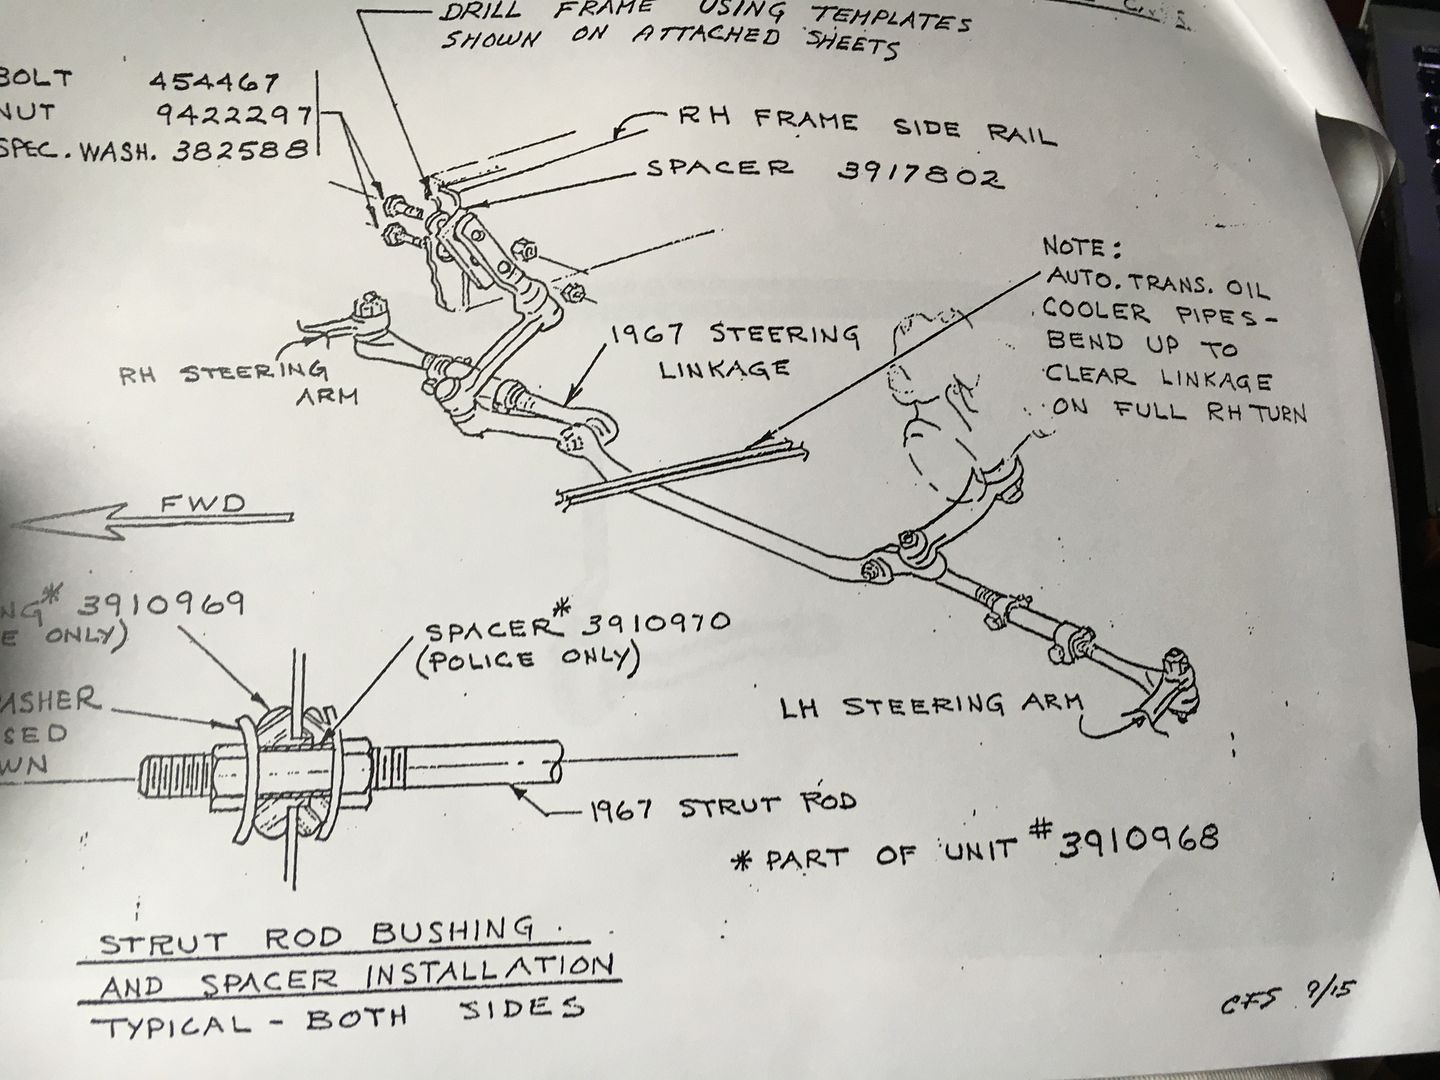 DRILL FRAME USING TEMPLATES
SHOWN ON ATTACHED SHEETS
BOLT 454467
NUT 9422297
SPEC. WASH. 382588
RH FRAME SIDE RAIL
SPACER 3917802
NOTE:
AUTO. TRANS. OIL
COOLER PIPES-
BEND UP TO
CLEAR LINKAGE
ON FULL RH TURN
1967 STEERING
LINKAGE
RH STEERING
ARM
FWD
NG* 3910969
E ONLY)
SPACER* 3910970
(POLICE ONLY)
ASHER
SED
WN
LH STEERING ARM
1967 STRUT ROD
* PART OF UNIT #3910968
STRUT ROD BUSHING
AND SPACER INSTALLATION
TYPICAL - BOTH SIDES
CFS 9/15